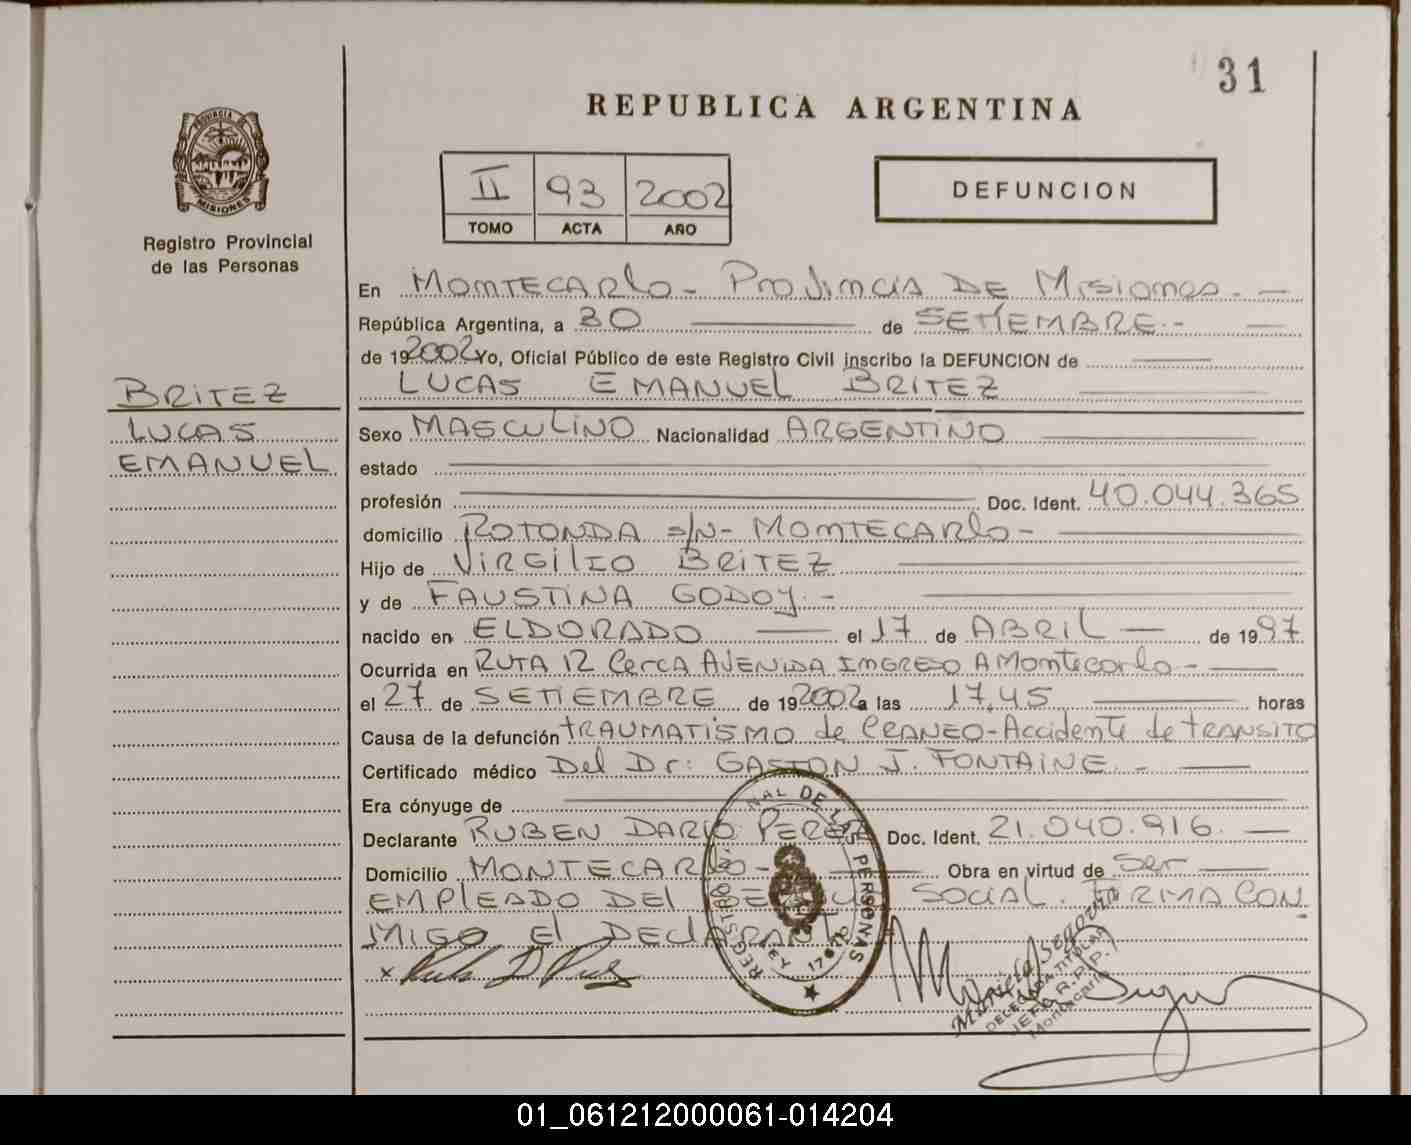 31
REPUBLICA ARGENTINA
PROVINCIA DE
MISIONES
Registro Provincial
de las Personas
II 93 2002
TOMO ACTA AÑO
DEFUNCION
BRITEZ
LUCAS
EMANUEL
En MONTECARLO - PROVINCIA DE MISIONES. -
República Argentina, a 30 de SETIEMBRE. -
de 192002 Yo, Oficial Público de este Registro Civil inscribo la DEFUNCION de
LUCAS EMANUEL BRITEZ
Sexo MASCULINO Nacionalidad ARGENTINO
estado
profesión Doc. Ident. 40.044.365
domicilio ROTONDA s/N - MONTECARLO -
Hijo de VIRGILIO BRITEZ
y de FAUSTINA GODOY. -
nacido en ELDORADO el 17 de ABRIL de 1997
Ocurrida en RUTA 12 Cerca AVENIDA INGRESO A Montecarlo -
el 27 de SETIEMBRE de 192002 a las 17,45 horas
Causa de la defunción TRAUMATISMO de CRANEO - Accidente de TRANSITO
Certificado médico Del Dr: GASTON J. FONTAINE. -
Era cónyuge de
Declarante RUBEN DARIO PEREZ Doc. Ident. 21.040.916.
Domicilio MONTECARLO - Obra en virtud de ser
EMPLEADO DEL SOCIAL. FIRMA CON
MIGO El DECLARANTE
REGISTRO NAL DE LAS PERSONAS
LEY 17671
Mariela Segovia
DELEGADA TITULAR
JEFE R.P.P.
Montecarlo
01_061212000061-014204